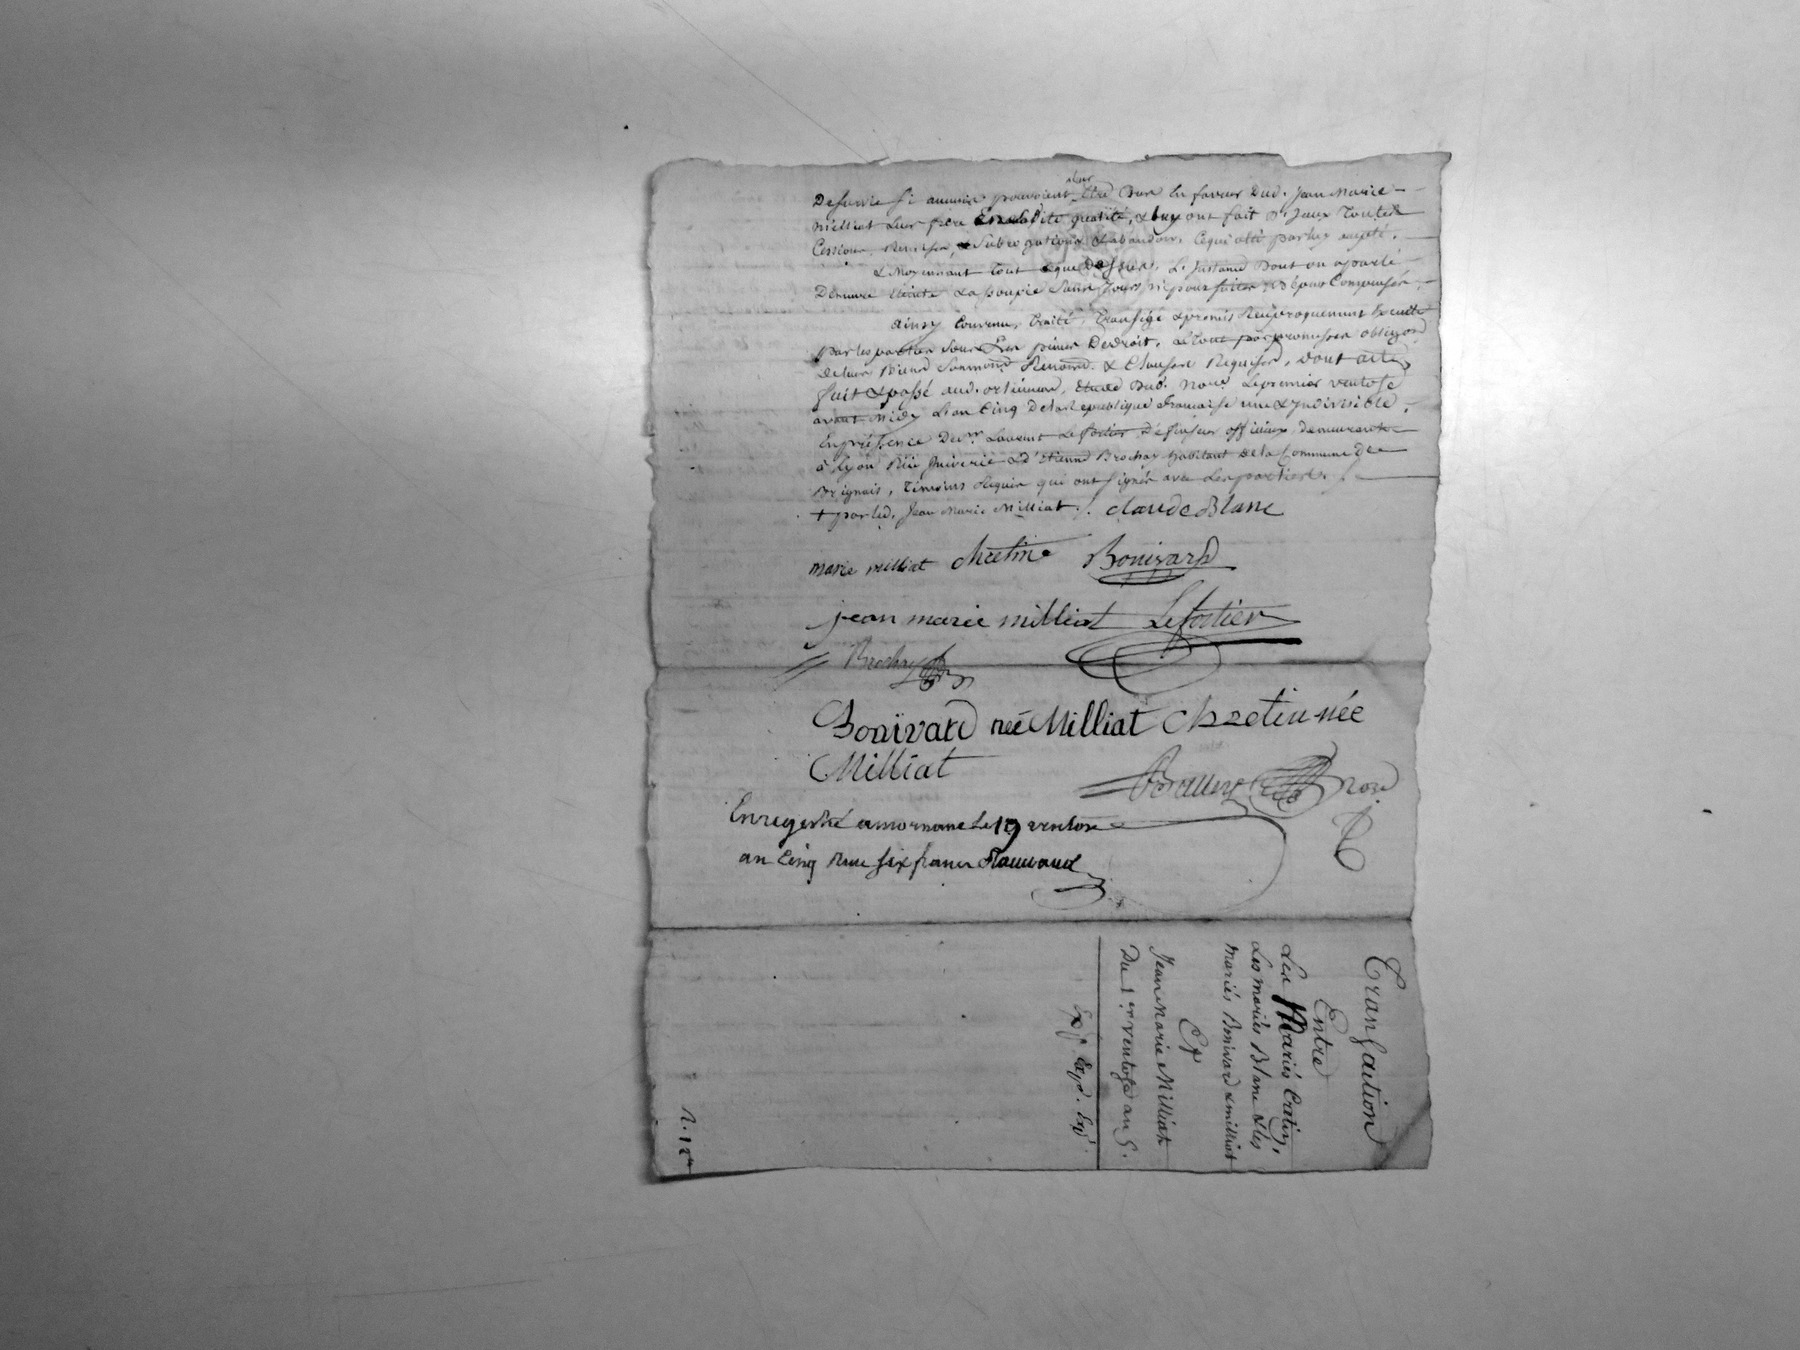 De survie si aucuns pouvoient leur être dus en faveur dud. Jean Marie
Milliat leur frère en sadite qualité, & luy ont fait d'Jceux toutes
Cessions, Remises, & Subrogations & abandon, ce qui a été par luy accepté.
& Moyennant tout ce que Dessus, L'Instance Dont on a parlé
Demeure éteinte & assoupie sans Jours ni poursuites, Dépens Compensés.
ainsy Convenu, traité, transigé & promis Réciproquement
par les parties sous les peines De droit, le tout par promesses obligaon
De leurs Biens Soumions Renonons & Clauses Requises, Dont acte
fait & passé aud. orliénas, étude Dud. Nore Le premier ventose
avant Midy L'an Cinq De la Republique française une & Jndivisible,
En présence De Laurent Lefortier Défenseur officieux demeurant
à Lyon Rüe Juiverie & d'Etienne Brochay habitant De la Commune De
Brignais, témoins Requis qui ont signés avec Les parties. /.
+ par led. Jean Marie Milliat /. claude Blanc
marie milliat Bonivard
jean marie milliat Lefortier
Brochay
Bonivard neé Milliat Chretin née
Milliat
Enregistré a mornant le 19 ventose
an Cinq Reçu six francs
Transaction
Entre
Les Mariés Cretin,
Les mariés Blanc & les
mariés Bonivard & milliat
Et
Jean Marie Milliat
Du 1er ventose an 5.
Expd. Expd. Expd.